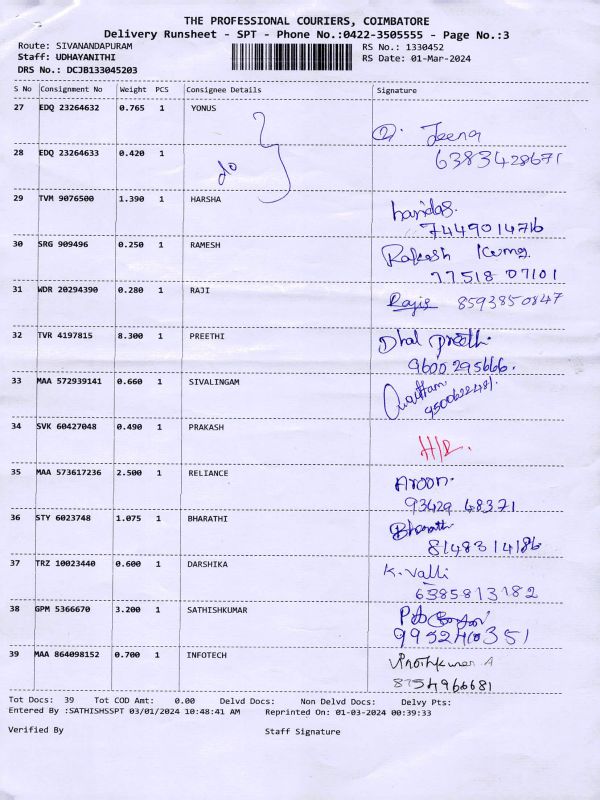 THE PROFESSIONAL COURIERS, COIMBATORE
Delivery Runsheet - SPT - Phone No.:0422-3505555 - Page No.:3
Route: SIVANANDAPURAM RS No.: 1330452
Staff: UDHAYANITHI RS Date: 01-Mar-2024
DRS No.: DCJB133045203
S No Consignment No Weight PCS Consignee Details Signature
27 EDQ 23264632 0.765 1 YONUS
Jeena
28 EDQ 23264633 0.420 1 do 6383428671
29 TVM 9076500 1.390 1 HARSHA haridas.
7449014716
30 SRG 909496 0.250 1 RAMESH Rakesh Kumar
77518 07101
31 WDR 20294390 0.280 1 RAJI Rajis 8593850847
32 TVR 4197815 8.300 1 PREETHI Dhal preeth.
9600295666.
33 MAA 572939141 0.660 1 SIVALINGAM
34 SVK 60427048 0.490 1 PRAKASH
35 MAA 573617236 2.500 1 RELIANCE Aroon.
93429 48371
36 STY 6023748 1.075 1 BHARATHI Bharath
8148314186
37 TRZ 10023440 0.600 1 DARSHIKA K. Valli
6385813182
38 GPM 5366670 3.200 1 SATHISHKUMAR
39 MAA 864098152 0.700 1 INFOTECH
8754966681
Tot Docs: 39 Tot COD Amt: 0.00 Delvd Docs: Non Delvd Docs: Delvy Pts:
Entered By :SATHISHSSPT 03/01/2024 10:48:41 AM Reprinted On: 01-03-2024 00:39:33
Verified By Staff Signature